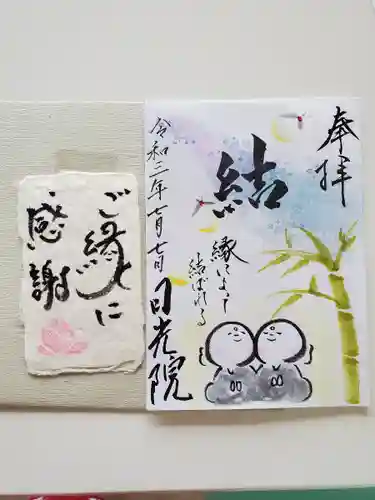 奉拝
結
縁によって
結ばれる
令和三年七月七日
日光院
ご縁に
感謝